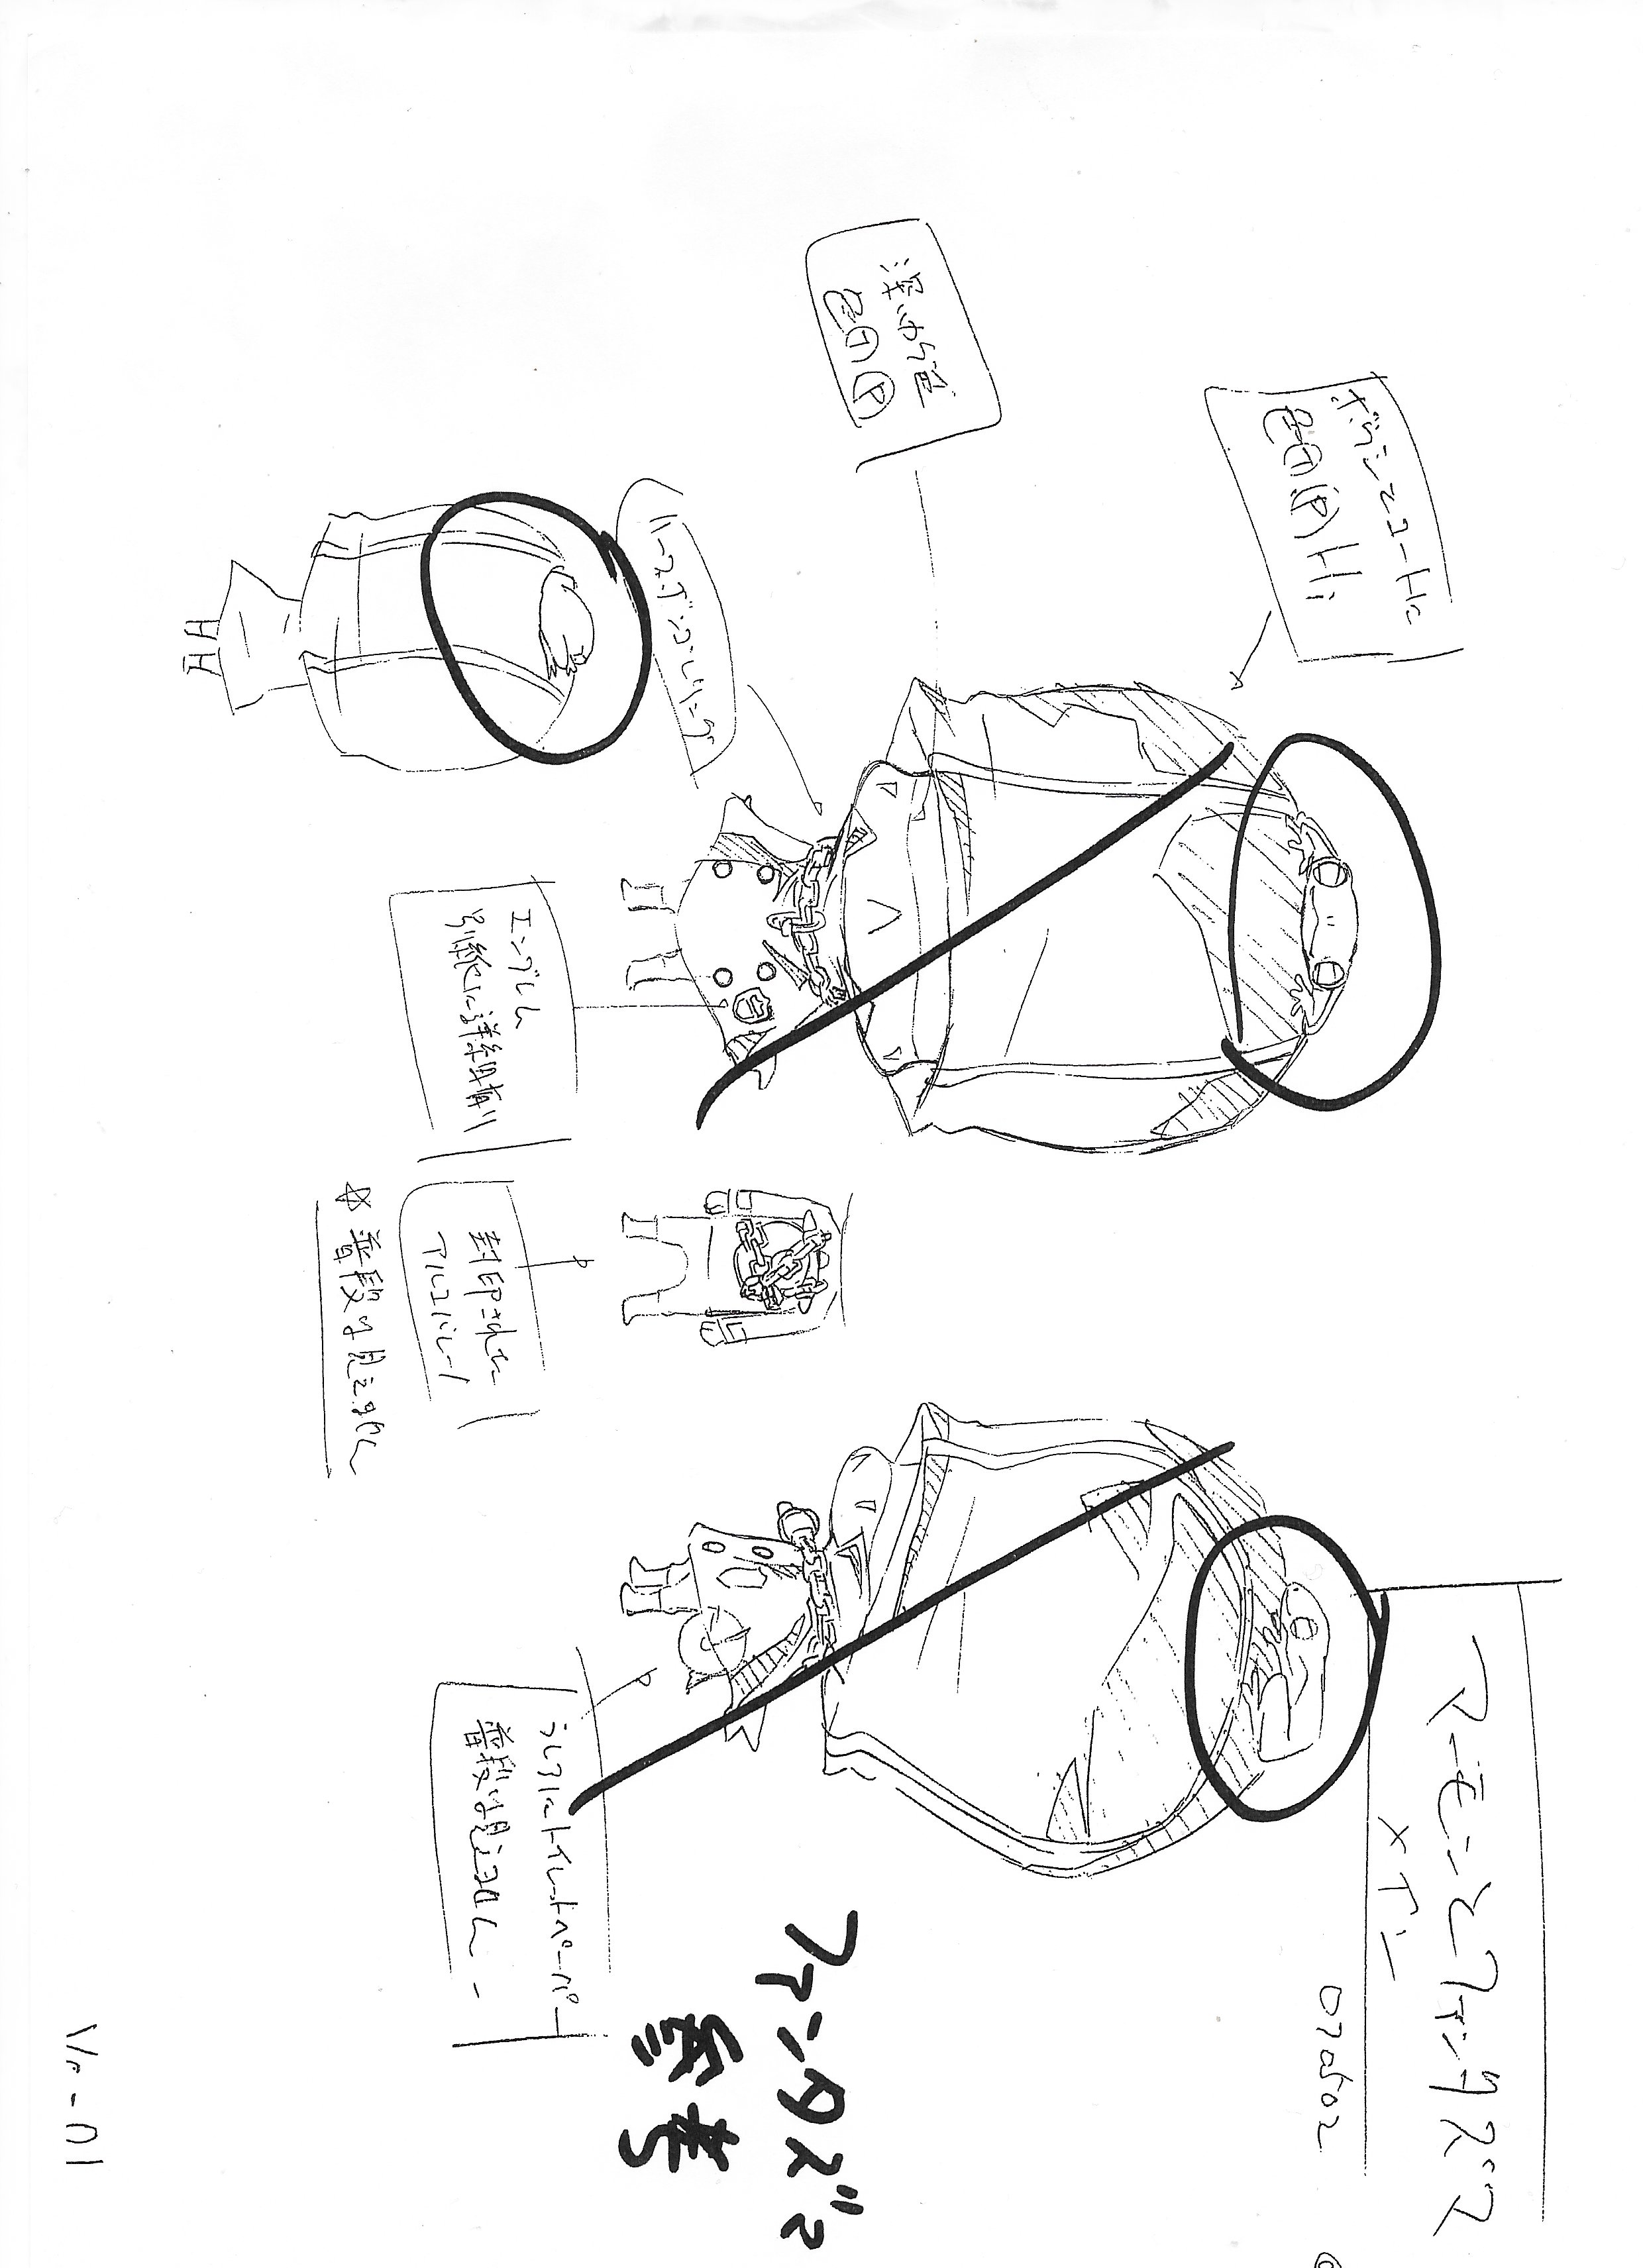 マーモンとファンタズマ
メイン
070502
ボウシとコートに
色T(P)Hi
深い分色
色TP
ハーフボンゴレリング
ファンタズマ
参考
エンブレム
別紙に詳細有り
封印された
アルコバレーノ
☆普段は見えません
うしろにトイレットペーパー
普段は見えません